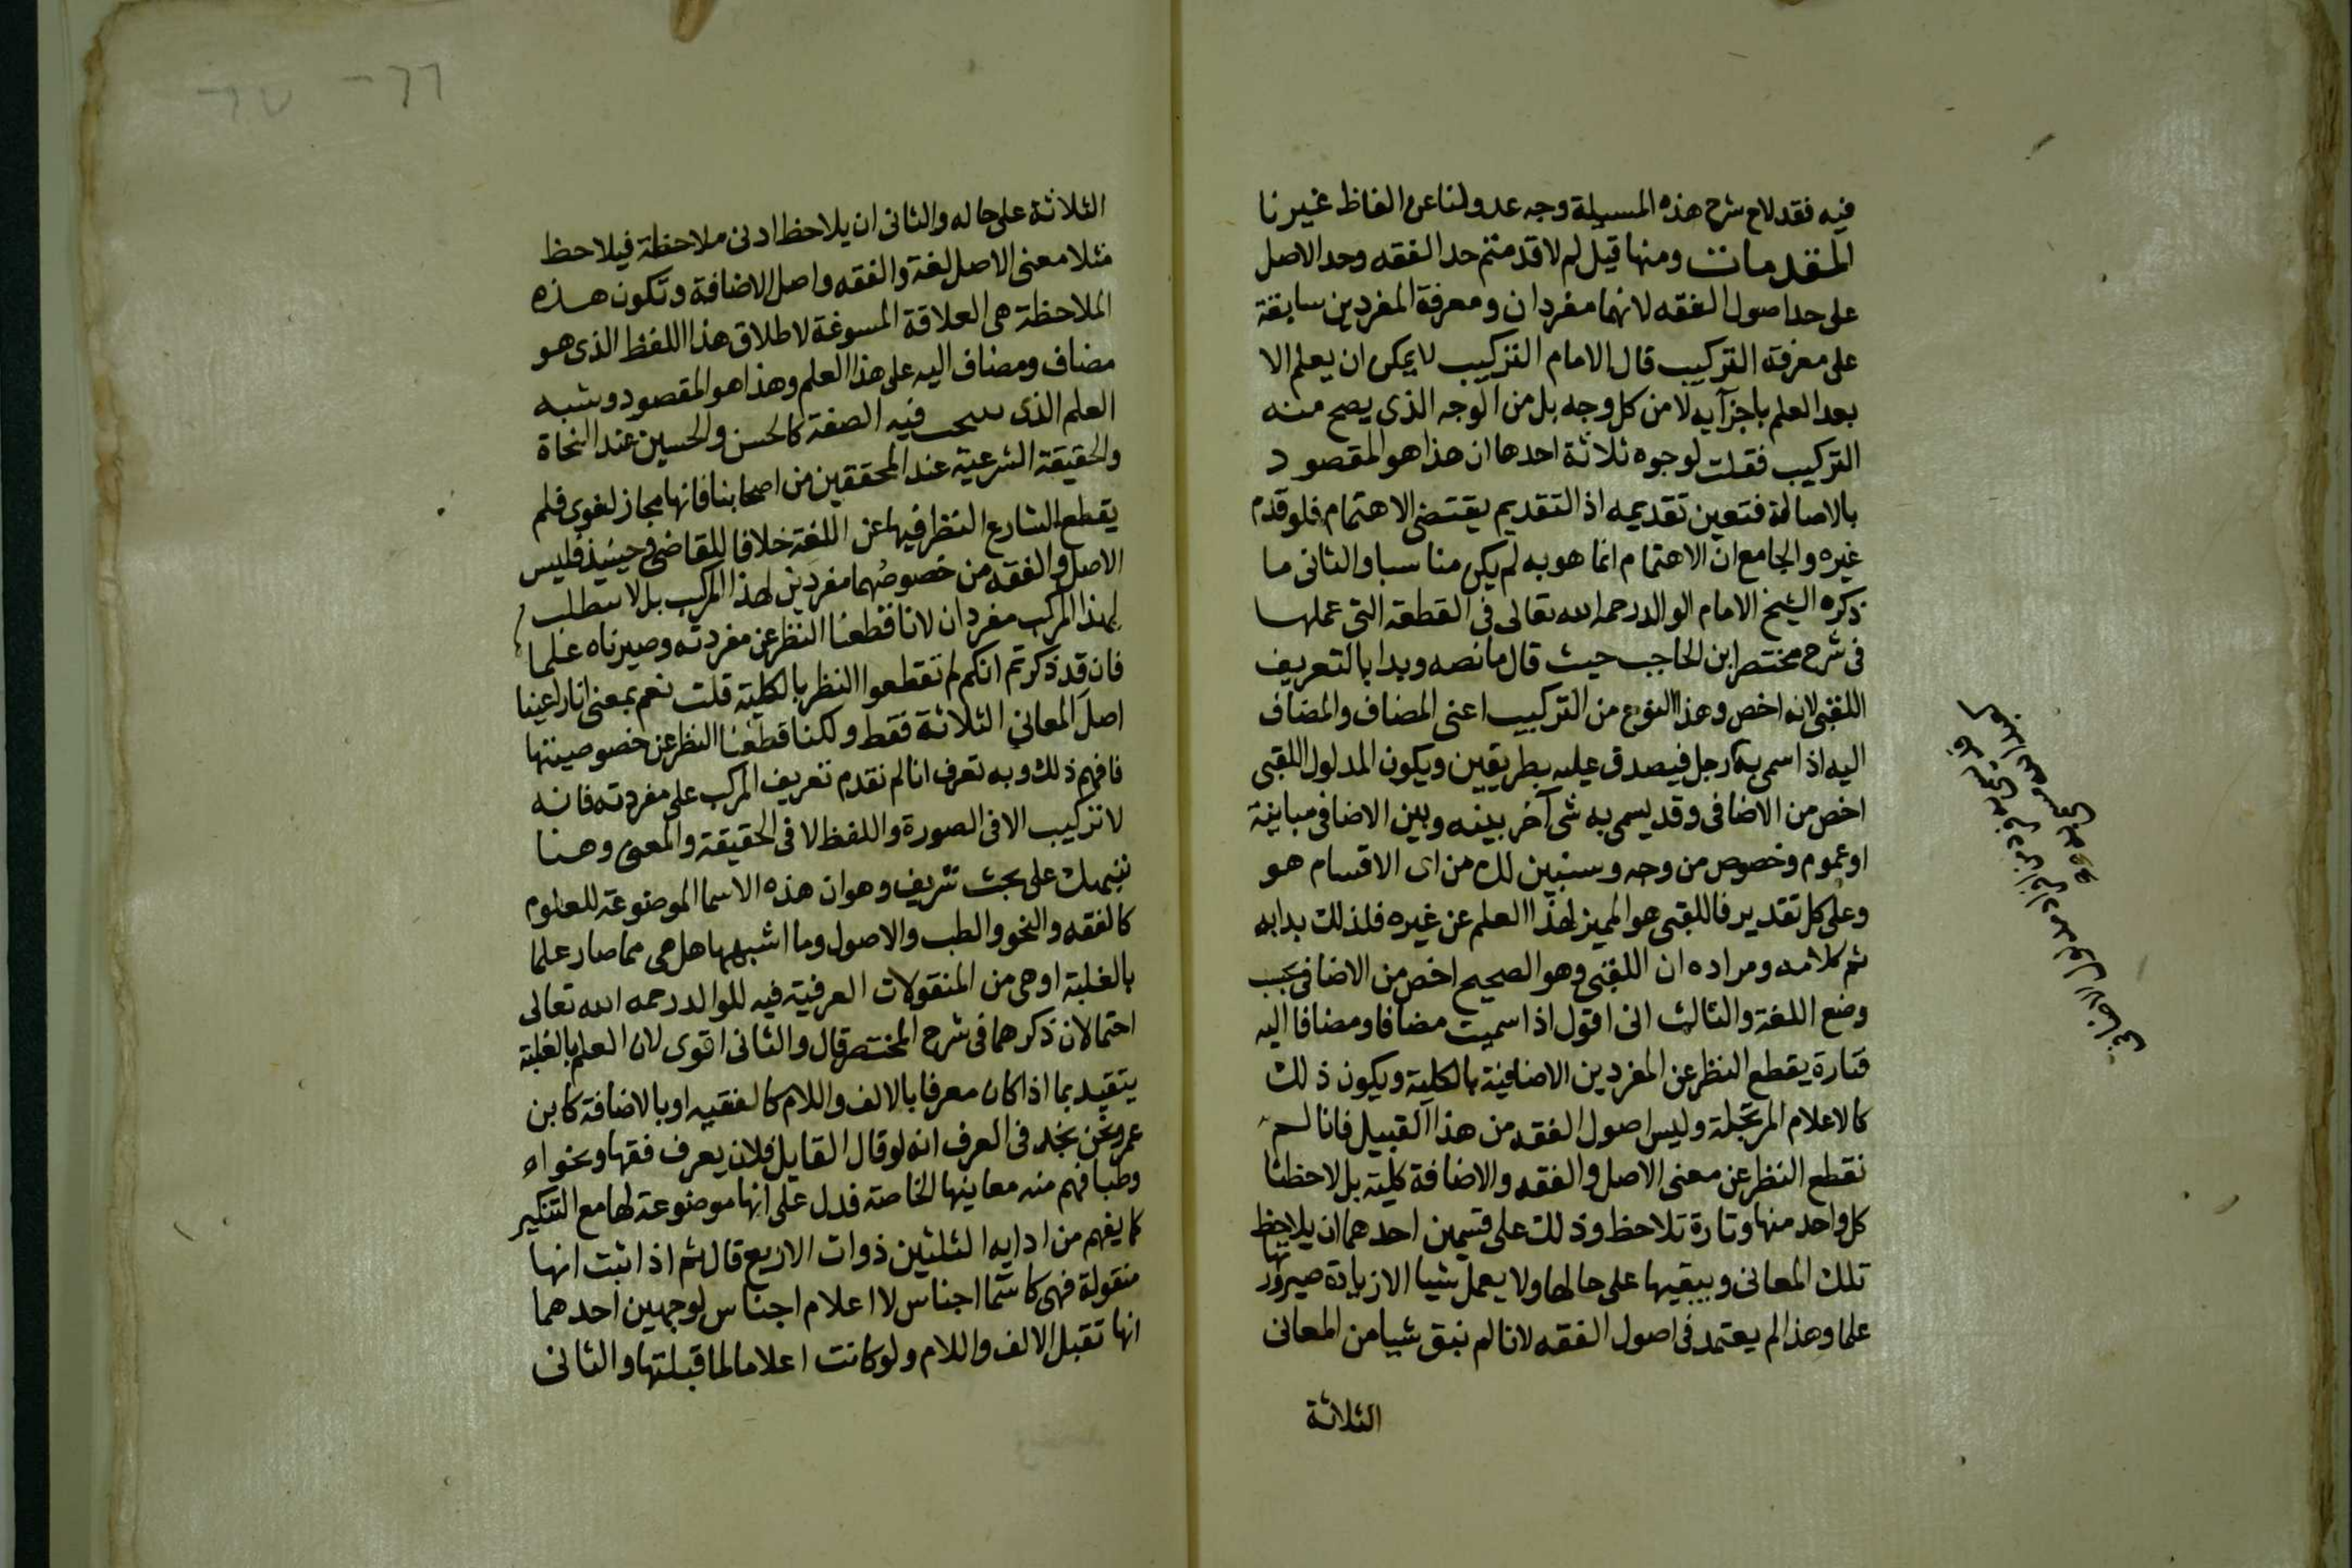 فيه فقد لاح شرح هذه المسيلة وجه عدولنا عن الفاظ غيرنا
المقدمات ومنها قيل لم لا قدمتم حد الفقه وحد الاصل
على حد اصول الفقه لانهما مفردان ومعرفة المفردين سابقة
على معرفة التركيب قال الامام التركيب لا يمكن ان يعلم الا
بعد العلم باجزآيه لا من كل وجه بل من الوجه الذى يصح منه
التركيب فقلت لوجوه ثلاثة احدها ان هذا هو المقصود
بالاصالة فتعين تقديمه اذ التقديم يقتضى الاهتمام فلو قدم
غيره والجامع ان الاهتمام انما هو به لم يكن مناسبا والثانى ما
ذكره الشيخ الامام الوالد رحمه الله تعالى فى القطعة التى عملها
فى شرح مختصر ابن الحاجب حيث قال ما نصه وبدا بالتعريف
اللقبى لانه اخص وهذا النوع من التركيب اعنى المضاف والمضاف
اليه اذا سمى به رجل فيصدق عليه بطريقين ويكون المدلول اللقبى
اخص من الاضافى وقد يسمى به شى آخر بينه وبين الاضافى مباينة
او عموم وخصوص من وجه وسنبين لك من اى الاقسام هو
وعلى كل تقدير فاللقبى هو المميز لهذا العلم عن غيره فلذلك بدا به
ثم كلامه ومراده ان اللقبى وهو الصحيح اخص من الاضافى بحسب
وضع اللغة والثالث انى اقول اذا سميت مضافا ومضافا اليه
فتارة يقطع النظر عن المفردين الاضافية بالكلية ويكون ذلك
كالاعلام المرتجلة وليس اصول الفقه من هذا القبيل فانا لم
نقطع النظر عن معنى الاصل والفقه والاضافة كلية بل لاحظنا
كل واحد منها وتارة تلاحظ وذلك على قسمين احدهما ان يلاحظ
تلك المعانى ويبقيها على حالها ولا يعمل شيا الا زيادة صيرورتها
علما وهذا لم يعتمد فى اصول الفقه لانا لم نبق شيا من المعانى
الثلاثة
الثلاثة على حاله والثانى ان يلاحظ ادنى ملاحظة فيلاحظ
مثلا معنى الاصل لغة والفقه واصل الاضافة وتكون هذه
الملاحظة هى العلاقة المسوغة لاطلاق هذا اللفظ الذى هو
مضاف ومضاف اليه على هذا العلم وهذا هو المقصود وشبه
العلم الذى فيه الصفة كالحسن والحسين عند النحاة
والحقيقة الشرعية عند المحققين من اصحابنا فانها مجاز لغوى فلم
يقطع الشارع النظر فيها عن اللغة خلافا للقاضى وحينيذ فليس
الاصل والفقه من خصوصهما مفردين لهذا المركب بل لا
لهذا المركب مفردان لانا قطعنا النظر عن مفردته وصيرناه علما
فان قد ذكرتم انكم لم تقطعوا النظر بالكلية قلت نعم بمعنى انا راعينا
اصل المعانى الثلاثة فقط ولكنا قطعنا النظر عن خصوصيتها
فافهم ذلك وبه تعرف انا لم نقدم تعريف المركب على مفردته فانه
لا تركيب الا فى الصورة واللفظ لا فى الحقيقة والمعنى وهنا
ننبهك على بحث شريف وهو ان هذه الاسما الموضوعة للعلوم
كالفقه والنحو والطب والاصول وما اشبهها هل هى مما صار علما
بالغلبة او هى من المنقولات العرفية فيه للوالد رحمه الله تعالى
احتمالان ذكرهما فى شرح المختصر قال والثانى اقوى لان العلم بالغلبة
يتقيد بما اذا كان معرفا بالالف واللام كالفقيه او بالاضافة كابن
عمر ونحن نجد فى العرف انه لو قال القايل فلان يعرف فقها ونحوا
وطبا فهم منه معاينها الخاصة فدل على انها موضوعة لها مع التنكير
كما يفهم من ادابه الثلثين ذوات الاربع قال ثم اذا ثبت انها
منقولة فهى كاسما اجناس لا اعلام اجناس لوجهين احدهما
انها تقبل الالف واللام ولو كانت اعلاما لما قبلتها والثانى